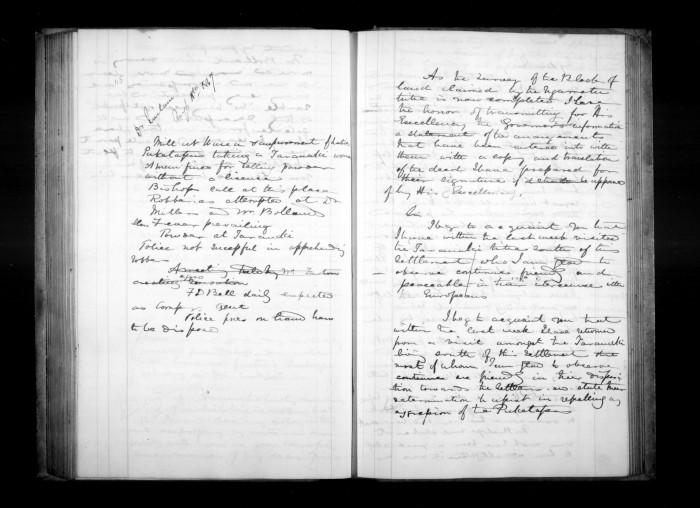 Dr Sinclair
May 18th 1847
Mill at Waiwa & improvement of natives
Pukatapu taking a Taranaki woman
American fined for selling powder
without a license
Bishops call at this place
Robberies attempted at Dr
Millers and Mr Bolland
Fever prevailing
Powder at Taranaki
Police not successful in apprehending
robber
A meeting held by Mr
creating
F D Bell daily expected
as Comp. agent
Police pres on hand how
to be disposed
As the survey of the Block of
land claimed by the Ngamotu
tribe is now completed I have
the honor of transmitting for His
Excellency the Governor's information
a statement of the arrangements
that have been entered into with
them with a copy and translation
of the deed I have prepared for
their signature if approved
of by His Excellency.
Sir
I beg to acquaint you that
I have within the last week visited
the Taranaki tribes south of this
settlement who I am glad to
observe continue friendly and
peaceable in their intercourse with
the Europeans
I beg to acquaint you that
within the last week I have returned
from a visit amongst the Taranaki
living south of this settlement the
most of whom I am glad to observe
continue are friendly in their disposi
tion towards the settlers and state their
determination to assist in repelling any
aggression of the Pukatapu